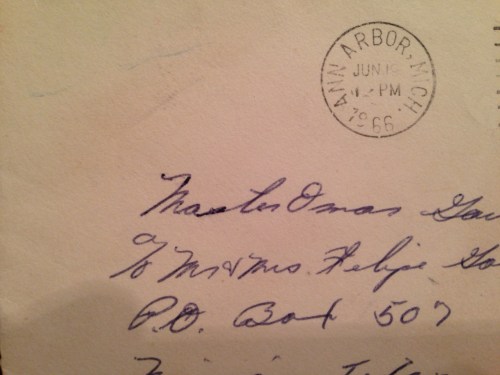 ANN ARBOR, MICH.
JUN
PM
1966
Master Omas
c/o Mr & Mrs. Felipe
P.O. Box 507